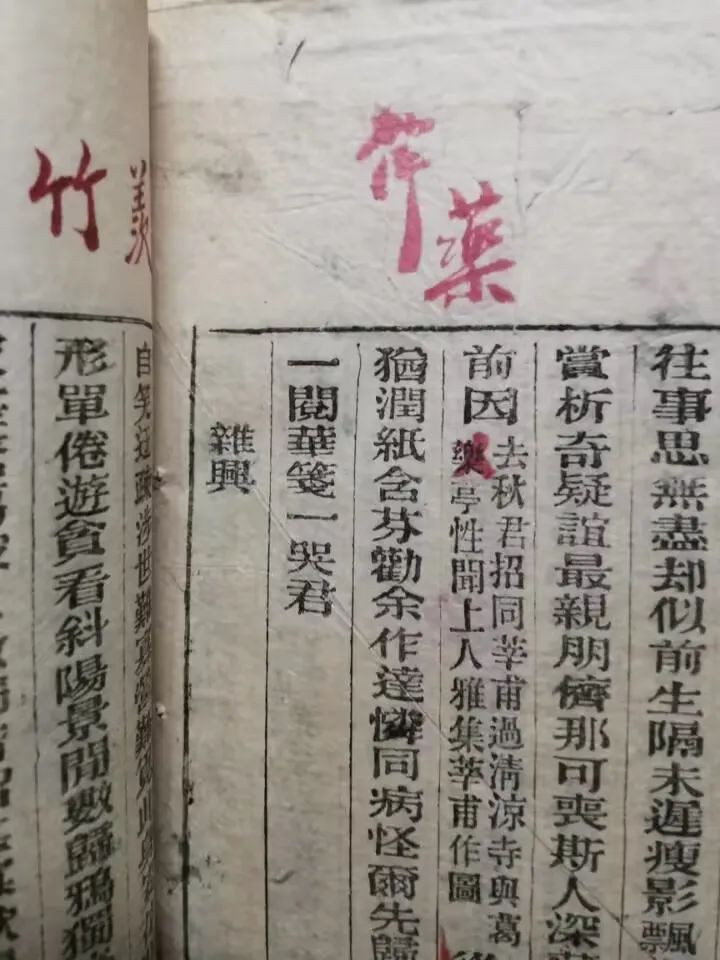 作藥
往事思無盡却似前生隔未遲瘦影飄
賞析奇疑誼最親朋儕那可喪斯人深
前因
去秋君招同莘甫過清涼寺與葛
樂亭性聞上人雅集莘甫作圖
猶潤紙含芬勸余作達憐同病怪爾先歸
一閱華箋一哭君
雜興
羨
竹
自笑迂疎涉世難
形單倦遊貪看斜陽景閒數歸鴉獨